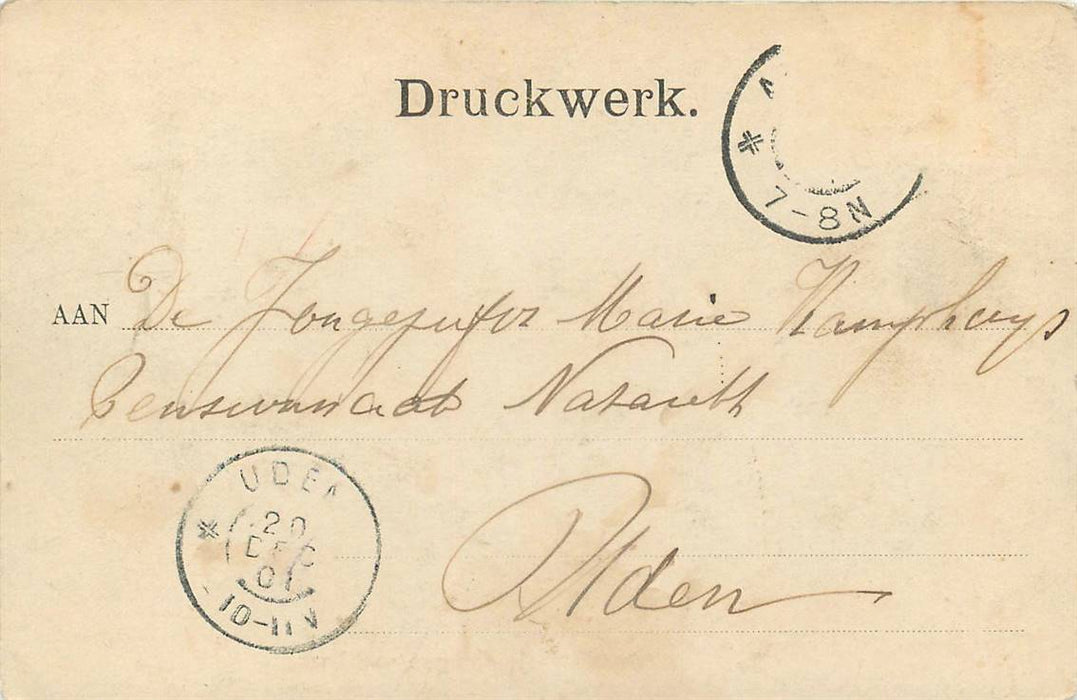 Druckwerk.
7-8N
AAN De Jongejufvr Marie Kamphuys
Pensionnaat Nazareth
UDEN
20
DEC
01
10-11V
Uden